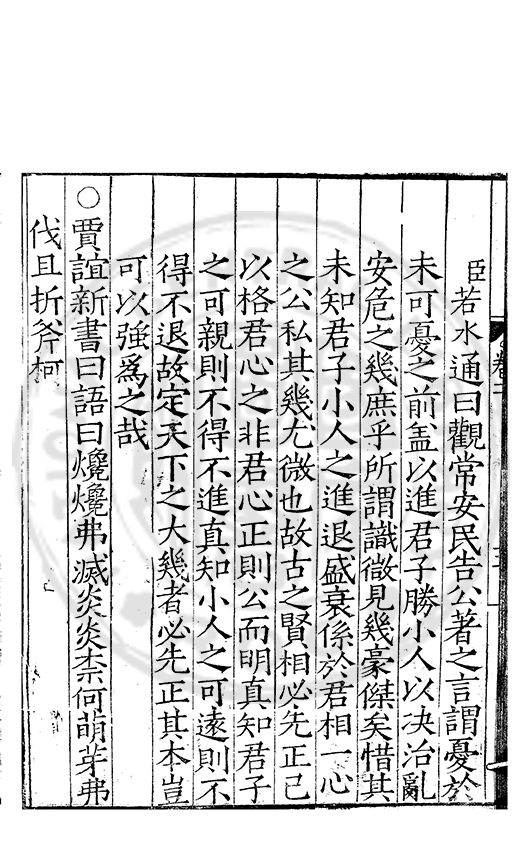 臣若水通曰觀常安民告公著之言謂憂於
未可憂之前盖以進君子勝小人以决治亂
安危之幾庶乎所謂識微見幾豪傑矣惜其
未知君子小人之進退盛衰係於君相一心
之公私其幾尤微也故古之賢相必先正己
以格君心之非君心正則公而明真知君子
之可親則不得不進真知小人之可遠則不
得不退故定天下之大幾者必先正其本豈
可以強爲之哉
○賈誼新書曰語曰爁爁弗滅炎炎柰何萌芽弗
伐且折斧柯